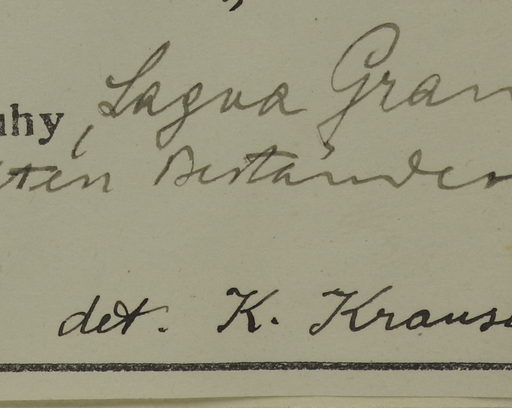 uhy, Lagoa Gran
ten Beständen
det. K. Krause